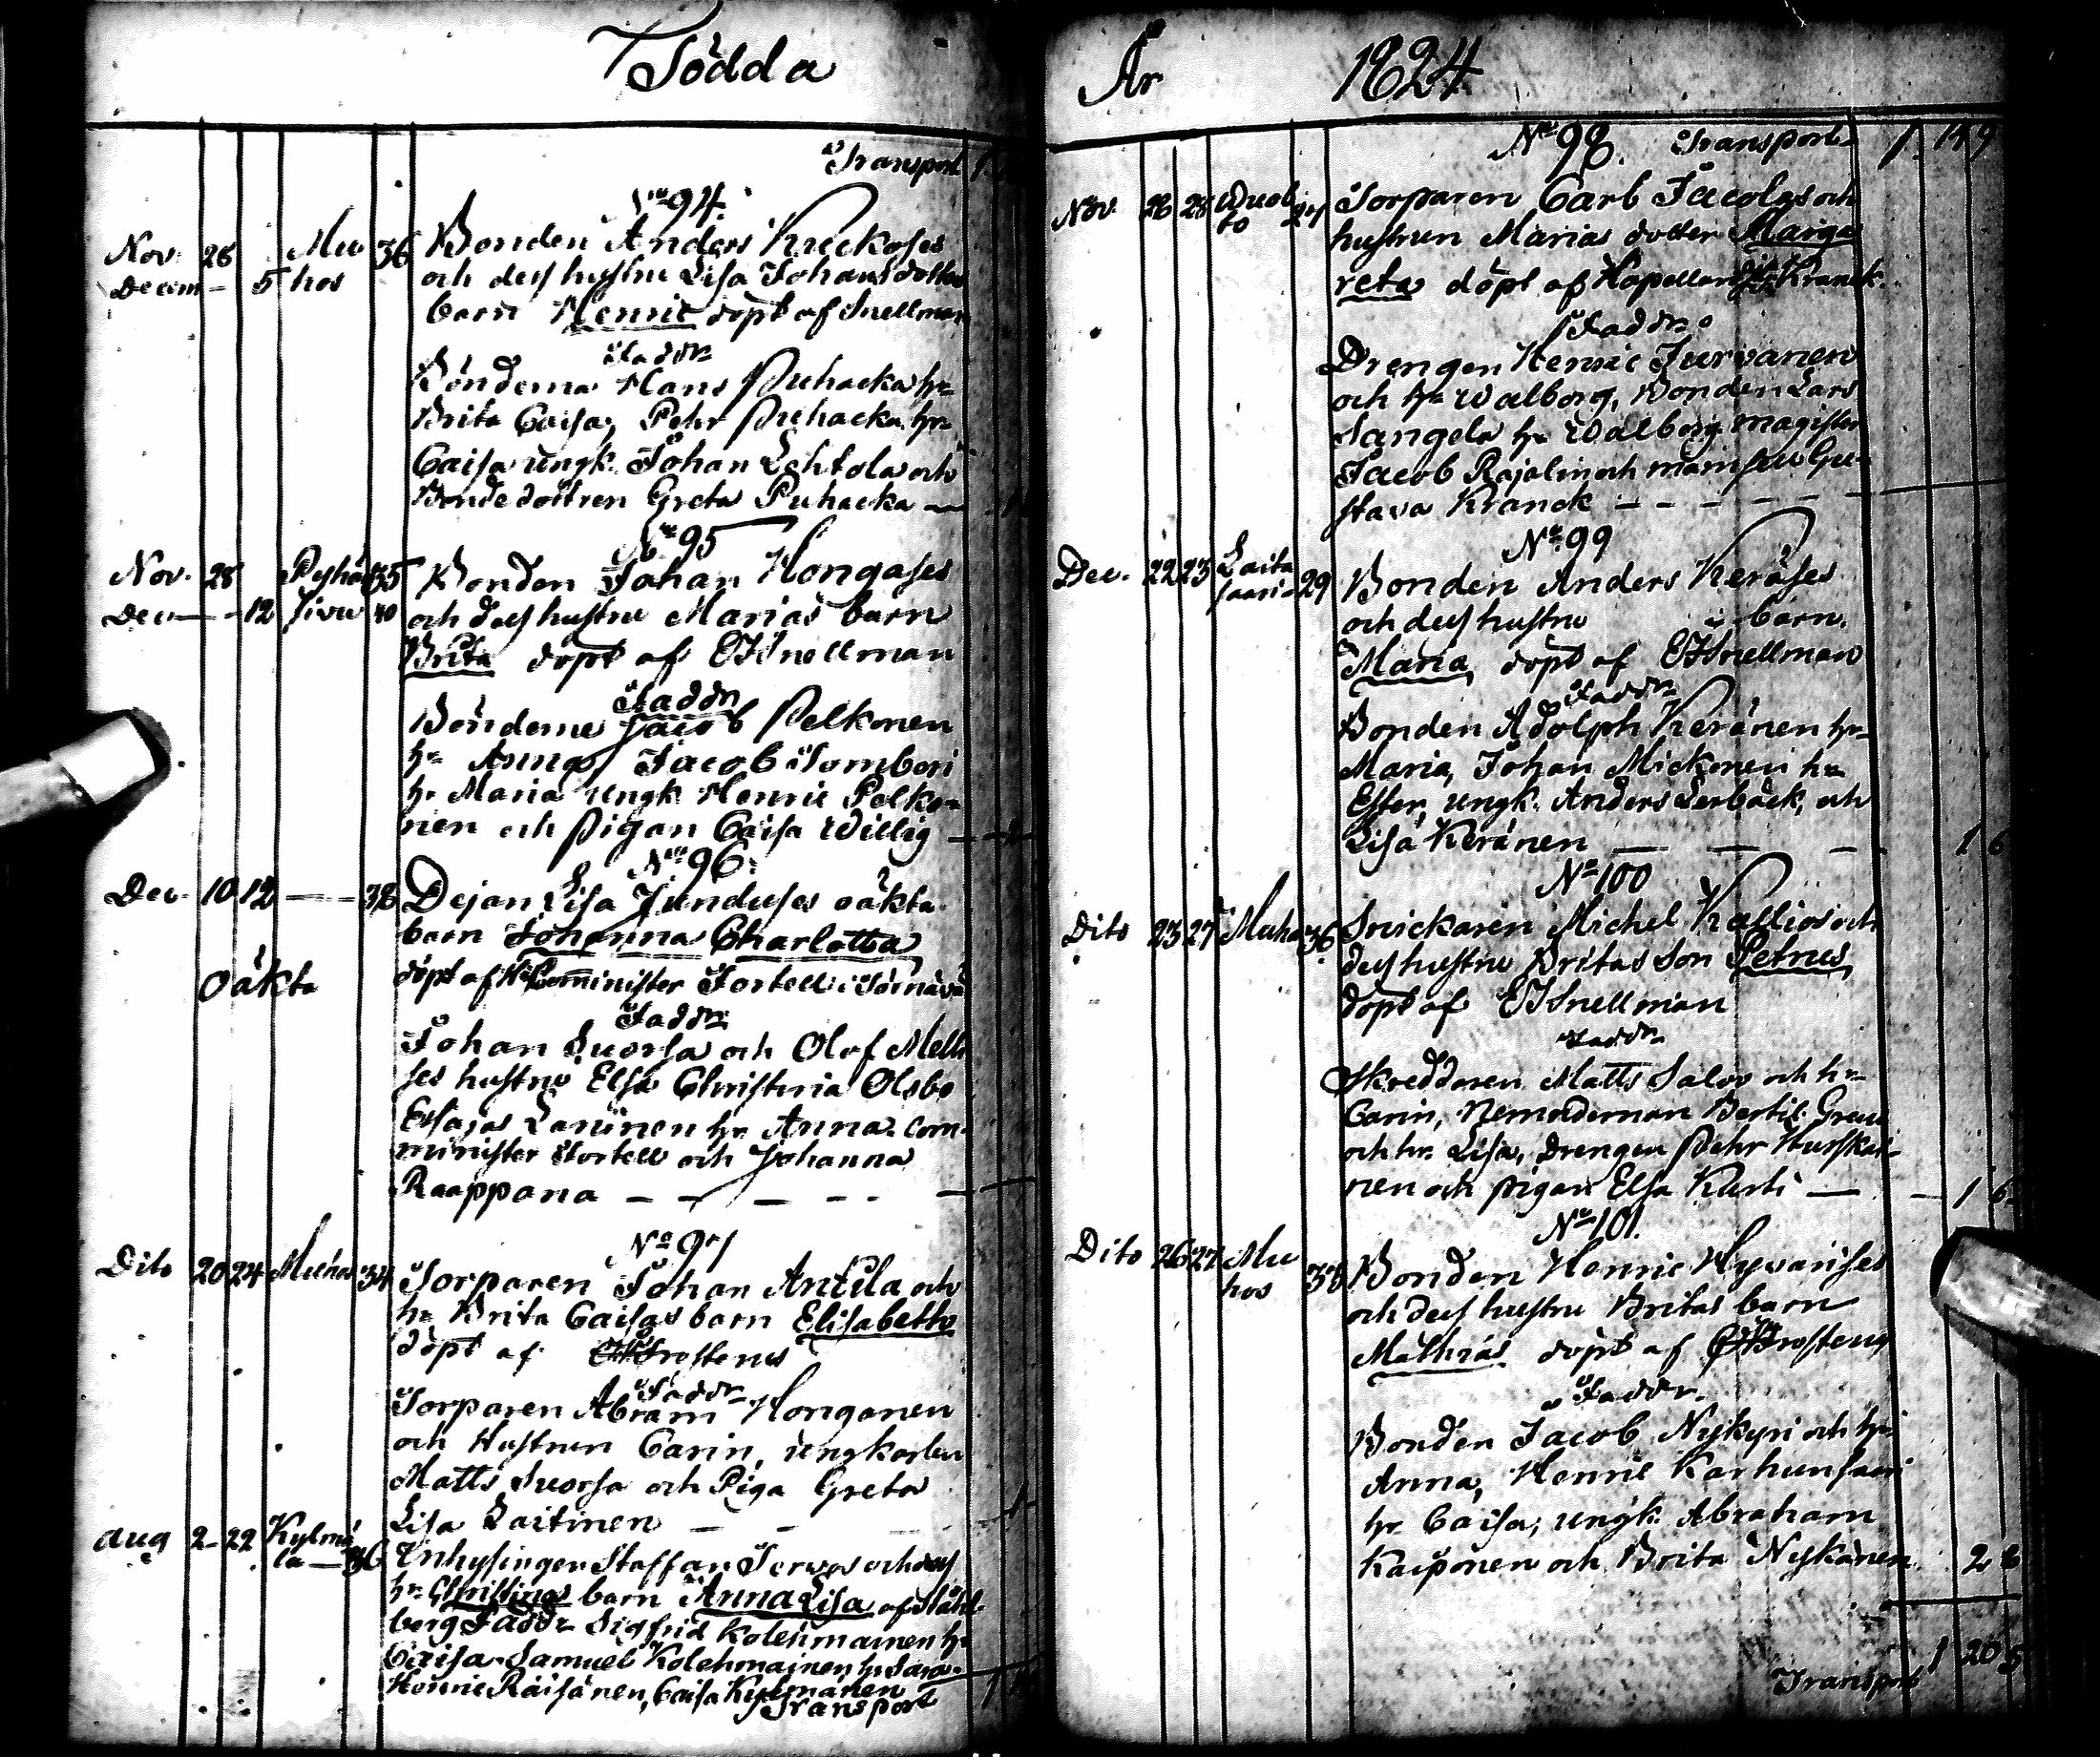 Födda
Transport 1
No 94.
Nov. 28 Mu 36 Bonden Anders Kreckoses
Decem – 5 hos och dess hustru Lisa Johansdotter
barn Henric döpt af Snellman
Faddr
Bönderna Hans Puhacka hr
Brita Caisa, Pehr Puhacka hr
Caisa ungk. Johan Lehtola och
Bondedottren Greta Puhacka —
No 95
Nov. 28 Pyhä 35 Bonden Johan Hongases
Dec — 12 sivu 40 och dess hustru Marias barn
Brita döpt af EJSnellman
Faddr
Bönderne Jacob Pelkonen
hr Anna, Jacob Tomberi
hr Maria ungk Henric Pelko-
nen och pigan Caisa Willig —
No 96.
Dec. 10 12 — 38 Dejan Lisa Junduses oäkta
barn Johanna Charlotta
oäkta döpt af Hr Comminister Fortell i
Faddr
Johan Suorsa och Olof Mell
ses hustru Elsa Christina Olsbo
Esajas Laninen hr Anna. Com-
minister Fortell och Johanna
Raappana — — — —
No 97
Dito 20 24 Muhos 34 Torparen Johan Antila och
hr Brita Caisas barn Elisabeth
döpt af Frosterus
Faddr
Torparen Abram Honganen
och Hustrun Carin, ungkarlen
Matts Suorsa och Piga Greta
Lisa Laitinen — — —
Aug 2 22 Kylmä Inhysingen Staffan Servos och dess
la — 36 hr Christinas barn Anna Lisa af Ståhl-
berg Faddr Sigfrid Kolehmainen hr
Caisa. Samuel Kolehmainen hr Sara.
Henric Räisänen, Caisa Kylmänen
Transport
År 1824
No 98. Transport 1. 14 9
Nov. 26 28 Torparen Carl Jacolas och
to 27 hustrun Marias dotter Marga
reta döpt af Kapellan Kranck.
Faddr
Drengen Henric Jurvanen
och hr Walborg, Bonden Lars
Sangela hr Walborg magister
Jacob Rajalin och mamsell Gu-
stava Kranck — — — — —
No 99
Dec. 22 23 Laita Bonden Anders Keräses
saari 29 och dess hustru barn.
Maria döpt af EJSnellman
Faddr
Bonden Adolph Keränen hr
Maria, Johan Mickonen hr
Ester, ungk. Anders Lerbäck, och
Lisa Keränen — — — 1 6
No 100
Dito 23 27 Muho 36 Snickaren Michel Kallios och
dess hustru Britas Son Petrus,
döpt af EJSnellman
Faddr
Skreddaren Matts Salvo och hr
Carin, Nemndeman Bertil
och hr Lisa, Drengen Pehr Hurskai-
nen och pigan Elsa Kusti — — 1 6
No 101.
Dito 26 27 Mu Bonden Henric Hyvärises
hos 38 och dess hustru Britas barn
Mathias döpt af Frosterus
Faddr.
Bonden Jacob Nykyri och hr
Anna, Henric Karhunsaari
hr Caisa, ungk. Abraham
Kaiponen och Brita Nykänen 2 6
1 20 5
Transport